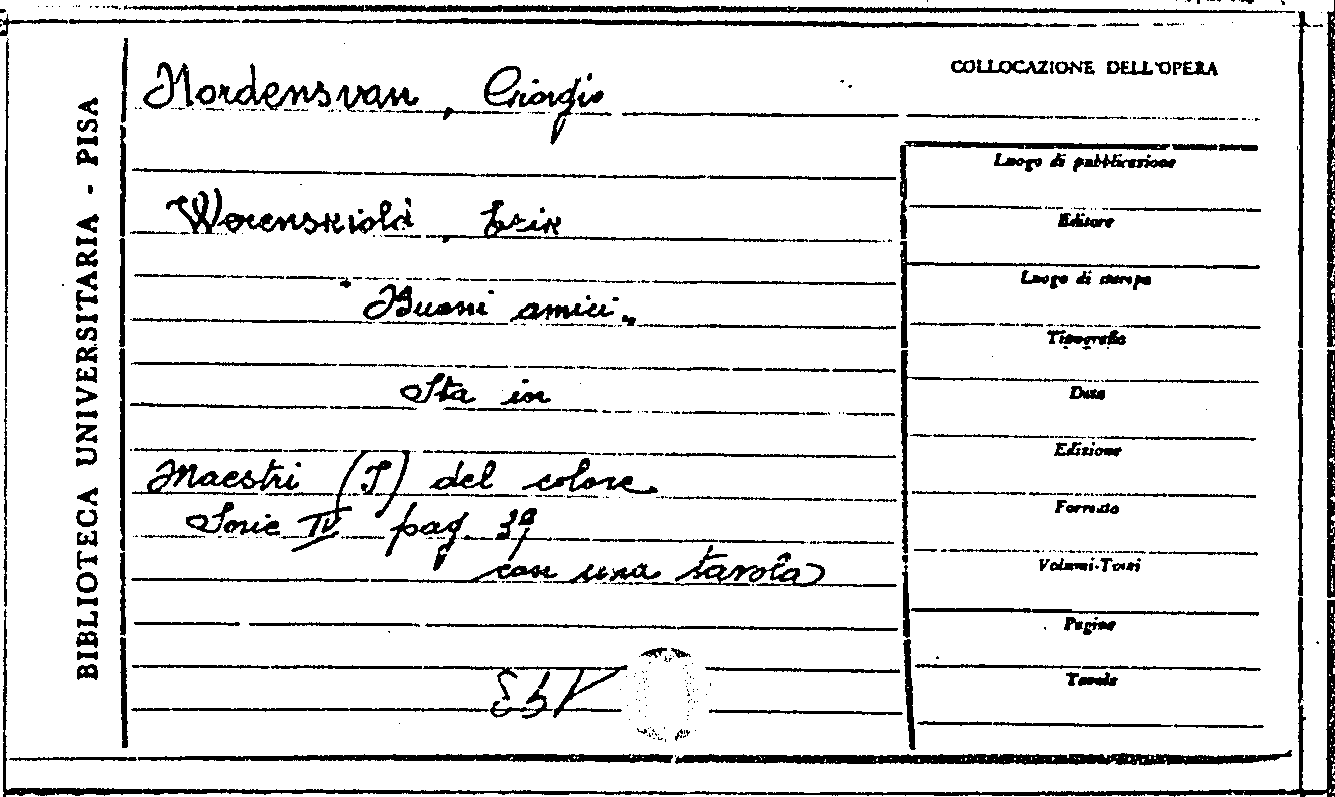 BIBLIOTECA UNIVERSITARIA - PISA
COLLOCAZIONE DELL'OPERA
Nordensvan, Giorgio
Luogo di pubblicazione
Werenskiold, Erik
Editore
Luogo di stampa
"Buoni amici"
Tipografia
Sta in
Data
Edizione
Maestri (I) del colore.
Formato
Serie IV pag.
con una tavola
Volumi-Tomi
Pagine
Tavole